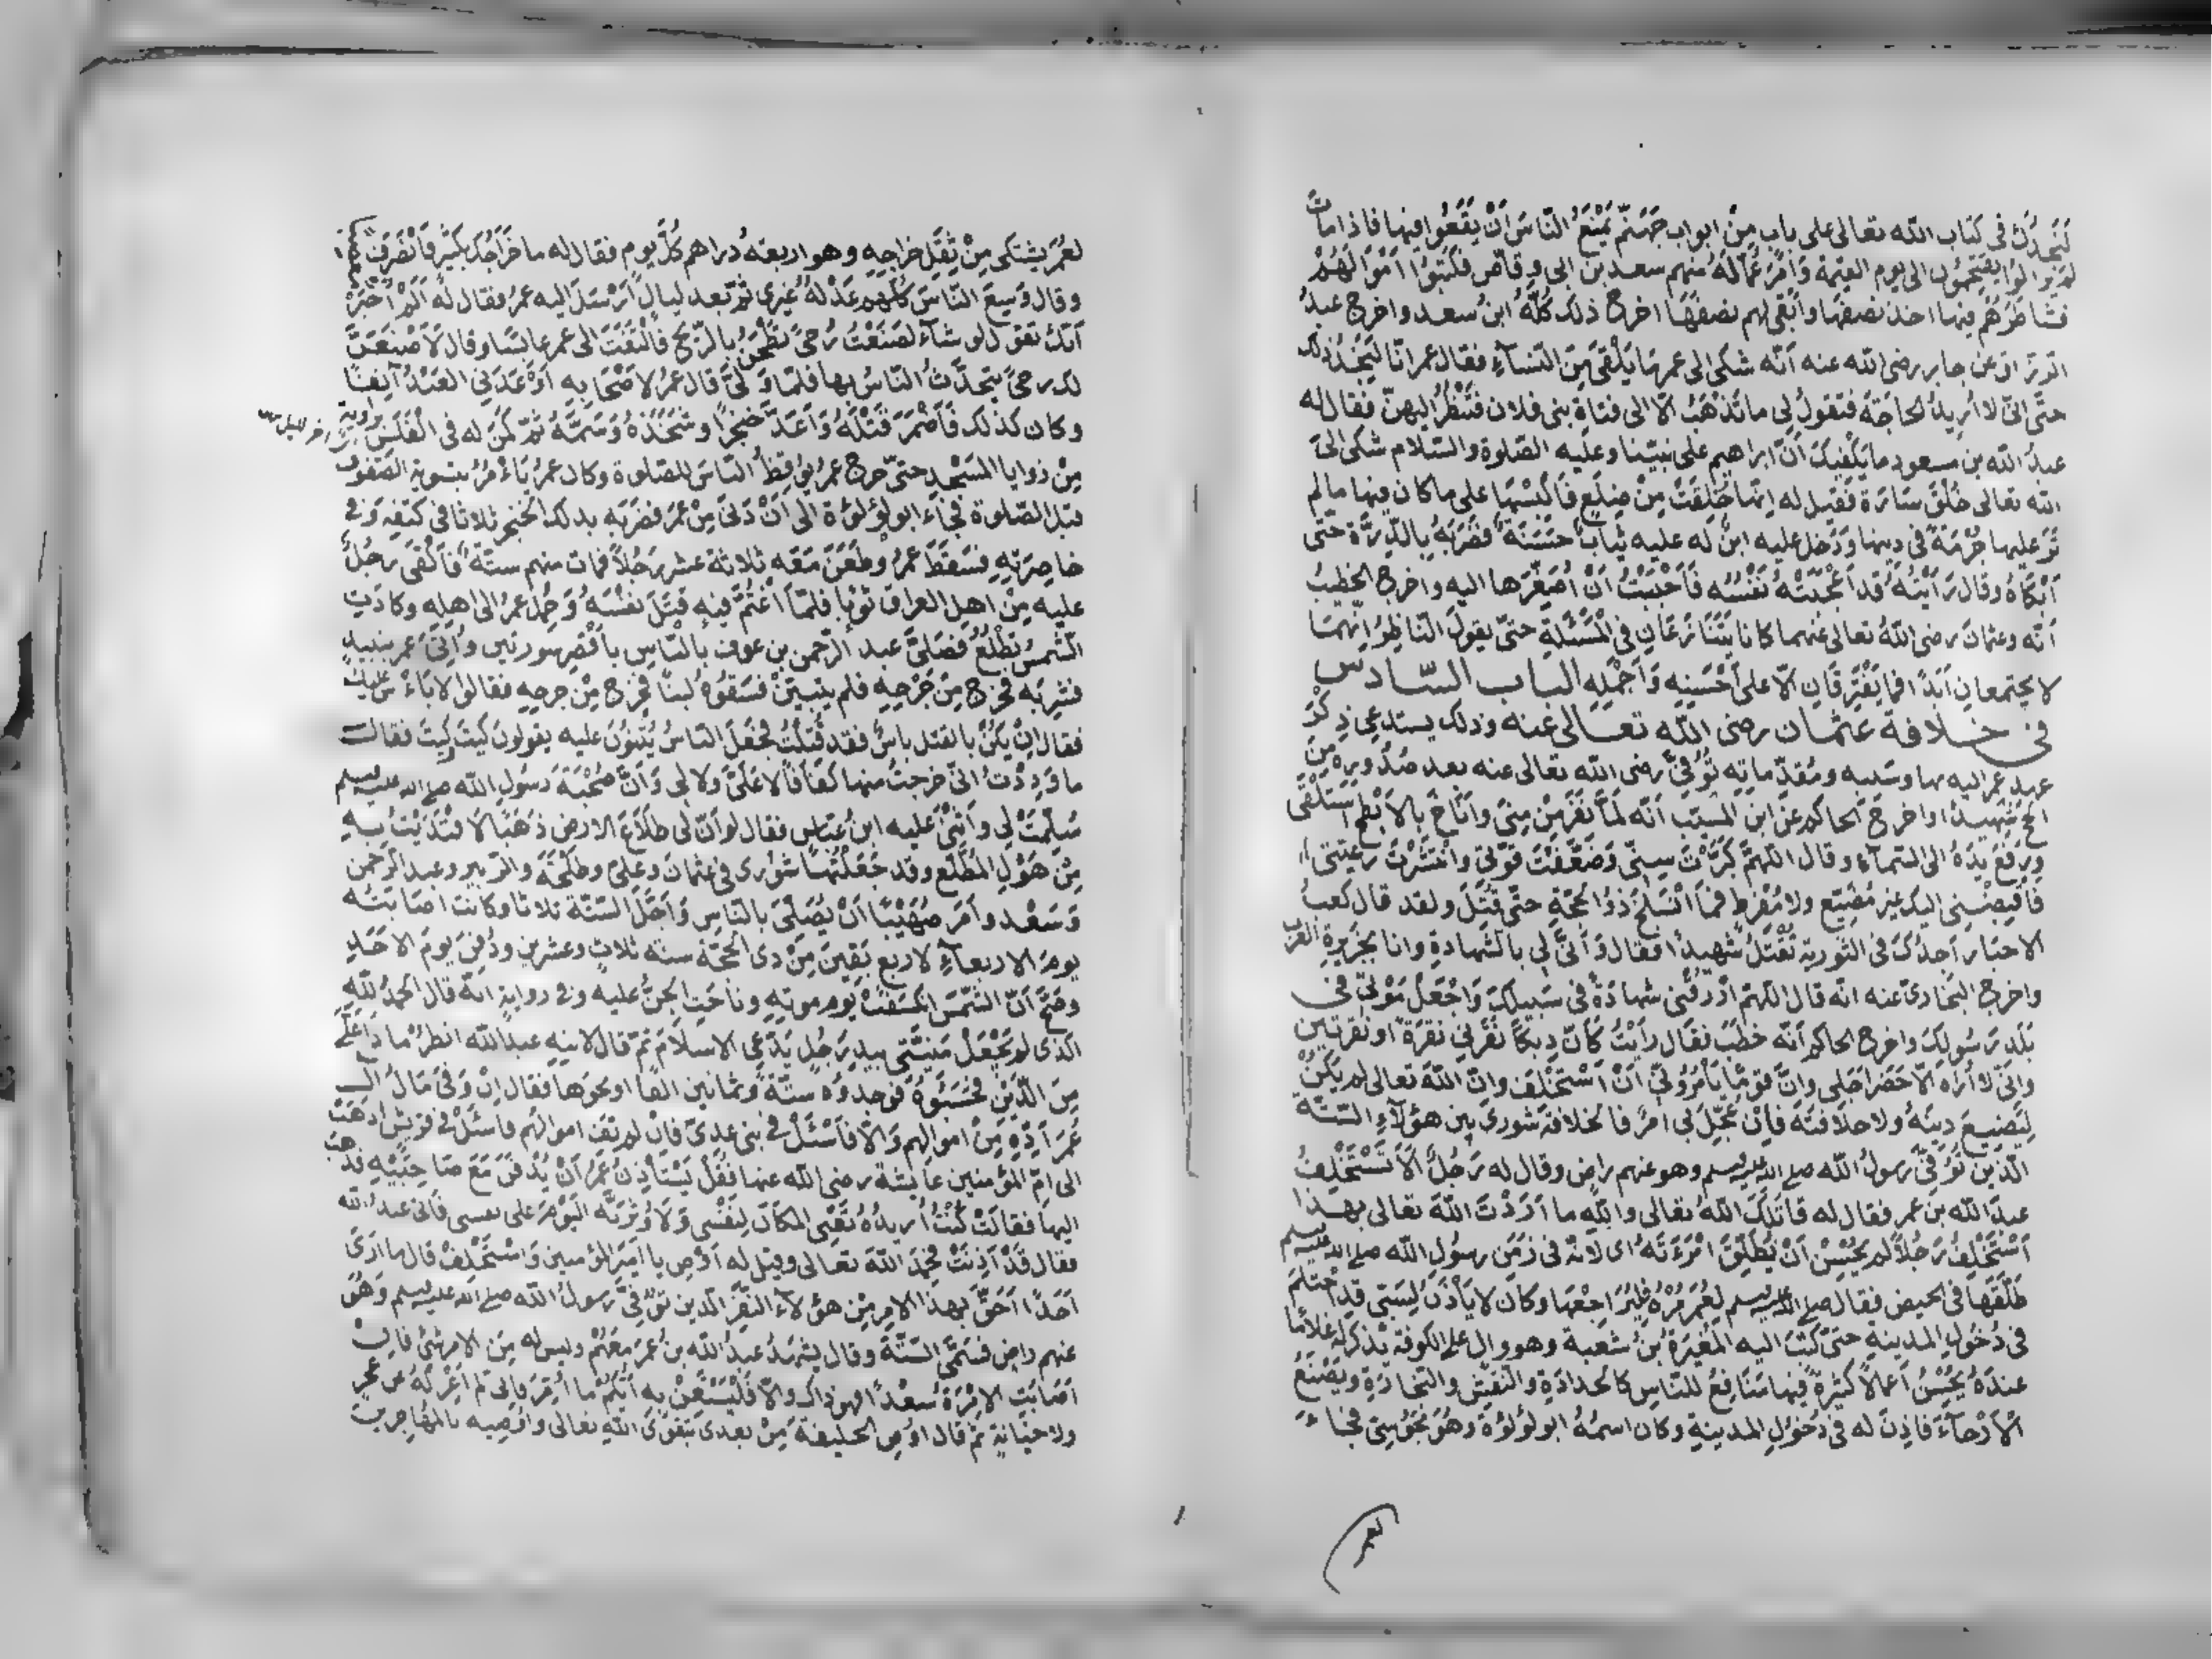 لنجدك في كتاب الله تعالى على باب من ابواب جهنم تمنع الناس أن يقعوا فيها فاذا مات
لم يزالوا يقتحمون الى يوم القيمة وأمر عماله منهم سعد بن ابي وقاص فكتبوا اموالهم
فشاطرهم فيها اخذ نصفها وأبقى لهم نصفها اخرج ذلك كله ابن سعد واخرج عبد
الرزاق عن جابر رضى الله عنه أنه شكى الى عمر ما يلقى من النساء فقال عمر انا لنجد ذلك
حتى انى لا أريد لحاجة فتقول لى ما تذهب الا الى فتاة بنى فلان فتنظر اليهن فقال له
عبد الله بن مسعود ما يكفيك أن ابراهيم على نبينا وعليه الصلوة والسلام شكى الى
الله تعالى خلق سارة فقيل له انها خلقت من ضلع فالبسها على ما كان فيها ما لم
تر عليها خزمة في دينها ودخل عليه ابن له عليه ثياب حسنة فضربه بالدرة حتى
أبكاه وقال رأيته قد أعجبته نفسه فأحببت أن أصغرها اليه واخرج الخطيب
أنه وعثمان رضى الله تعالى عنهما كانا يتنازعان في المسئلة حتى يقول الناظر انهما
لا يجتمعان أبدا فما يفترقان الا على أحسنه وأجمله الباب السادس
فى خلافة عثمان رضى الله تعالى عنه وذلك يستدعى ذكر
عهد عمر اليه بها وسببه ومقدماته توفى رضى الله تعالى عنه بعد صدوره من
الحج شهيدا واخرج الحاكم عن ابن المسيب أنه لما نفر من منى وأناخ بالابطح استلقى
ورفع يده الى السماء وقال اللهم كبرت سنى وضعفت قوتى وانتشرت رعيتى
فاقبضنى اليك غير مضيع ولا مفرط فما انسلخ ذو الحجة حتى قتل ولقد قال كعب
الاحبار أجدك فى التورية تقتل شهيدا فقال وأنى لي بالشهادة وانا بجزيرة العرب
واخرج البخارى عنه انه قال اللهم ارزقنى شهادة فى سبيلك واجعل موتى فى
بلد رسولك واخرج الحاكم أنه خطب فقال رأيت كأن ديكا نقرنى نقرة او نقرتين
وانى لا أراه الا حضر اجلى وان قوما يأمرونى أن أستخلف وان الله تعالى لم يكن
ليضيع دينه ولا خلافته فان عجل بى امر فالخلافة شورى بين هؤلاء الستة
الذين توفى رسول الله صلى الله عليه وسلم وهو عنهم راض وقال له رجل ألا تستخلف
عبد الله بن عمر فقال له قاتلك الله تعالى والله ما أردت الله تعالى بهذا
أستخلف رجلا لم يحسن أن يطلق امرءته اى لانه فى زمن رسول الله صلى الله عليه وسلم
طلقها فى الحيض فقال صلى الله عليه وسلم لعمر مره فليراجعها وكان لا يأذن لسبى قد احتلم
فى دخول المدينة حتى كتب اليه المغيرة بن شعبة وهو وال على الكوفة يذكر له غلاما
عنده يحسن أعمالا كثيرة فيها منافع للناس كالحدادة والنقش والنجارة ويصنع
الأرحاء فاذن له فى دخول المدينة وكان اسمه ابو لؤلؤة وهو مجوسى فجاء
لعمر
لعمر يشتكى من ثقل خراجه وهو اربعة دراهم كل يوم فقال له ما خراجك بكثير فانصرف
وقال وسع الناس كلهم عدله غيرى ثم بعد ليال ارسل اليه عمر فقال له ألم أخبر
أنك تقول لو شاء لصنعت رحى تطحن بالريح فالتفت الى عمر عابسا وقال لأصنعن
لك رحى يتحدث الناس بها فلما ولى قال عمر لاصحابه أوعدنى العبد آنفا
وكان كذلك فأضمر قتله وأعد خنجرا وشحذه وسمه ثم كمن له فى الغلس
من زوايا المسجد حتى خرج عمر يوقظ الناس للصلوة وكان عمر يأمر بتسوية الصفوف
قبل الصلوة فجاء ابو لؤلؤة الى أن دنى من عمر فضربه بذلك الخنجر ثلاثا فى كتفه وفى
خاصرته فسقط عمر وطعن معه ثلاثة عشر رجلا فمات منهم ستة فألقى رجل
عليه من اهل العراق ثوبا فلما أغتم فيه قتل نفسه وحمل عمر الى اهله وكادت
الشمس تطلع فصلى عبد الرحمن بن عوف بالناس بأقصر سورتين وأتى عمر بنبيذ
فشربه فخرج من جرحه فلم يتبين فسقوه لبنا فخرج من جرحه فقالوا لا بأس عليك
فقال ان يكن بالقتل باس فقد قتلت فجعل الناس يثنون عليه يقولون كيت كيت فقال
ما وددت انى خرجت منها كفافا لا على ولا لى وأن صحبة رسول الله صلى الله عليه وسلم
سلمت لي وأثنى عليه ابن عباس فقال لو أن لى طلاع الارض ذهبا لافتديت به
من هول المطلع وقد جعلتها شورى فى عثمان وعلى وطلحة والزبير وعبد الرحمن
وسعد وأمر صهيبا أن يصلى بالناس وأجل الستة ثلاثا وكانت اصابته
يوم الاربعاء لاربع بقين من ذى الحجة سنة ثلاث وعشرين ودفن يوم الاحد
وصح أن الشمس انكسفت يوم موته وناحت الجن عليه وفى رواية انه قال الحمد لله
الذى لم يجعل منيتى بيد رجل يدعى الاسلام ثم قال لابنه عبد الله انظر ما ذا على
من الدين فحسبوه فوجدوه ستة وثمانين الفا او نحوها فقال ان وفى مال آل
عمر أده من اموالهم والا فاسئل فى بنى عدى فان لم تف اموالهم فاسئل فى قريش اذهب
الى ام المؤمنين عايشة رضى الله عنها فقل يستأذن عمر أن يدفن مع صاحبيه فذهب
اليها فقالت كنت أريده تعنى المكان لنفسى ولاوثرنه اليوم على نفسى فأتى عبد الله
فقال قد أذنت فحمد الله تعالى وقيل له أوص يا امير المؤمنين واستخلف قال ما ارى
احدا أحق بهذا الامر من هؤلاء النفر الذين توفى رسول الله صلى الله عليه وسلم وهو
عنهم راض فسمى الستة وقال يشهد عبد الله بن عمر معهم وليس له من الامر شئ فان
أصابت الامرة سعدا فهو ذاك والا فليستعن به أيكم ما أمر فانى لم اعزله عن عجز
ولا خيانة ثم قال اوصى الخليفة من بعدى بتقوى الله تعالى واوصيه بالمهاجرين